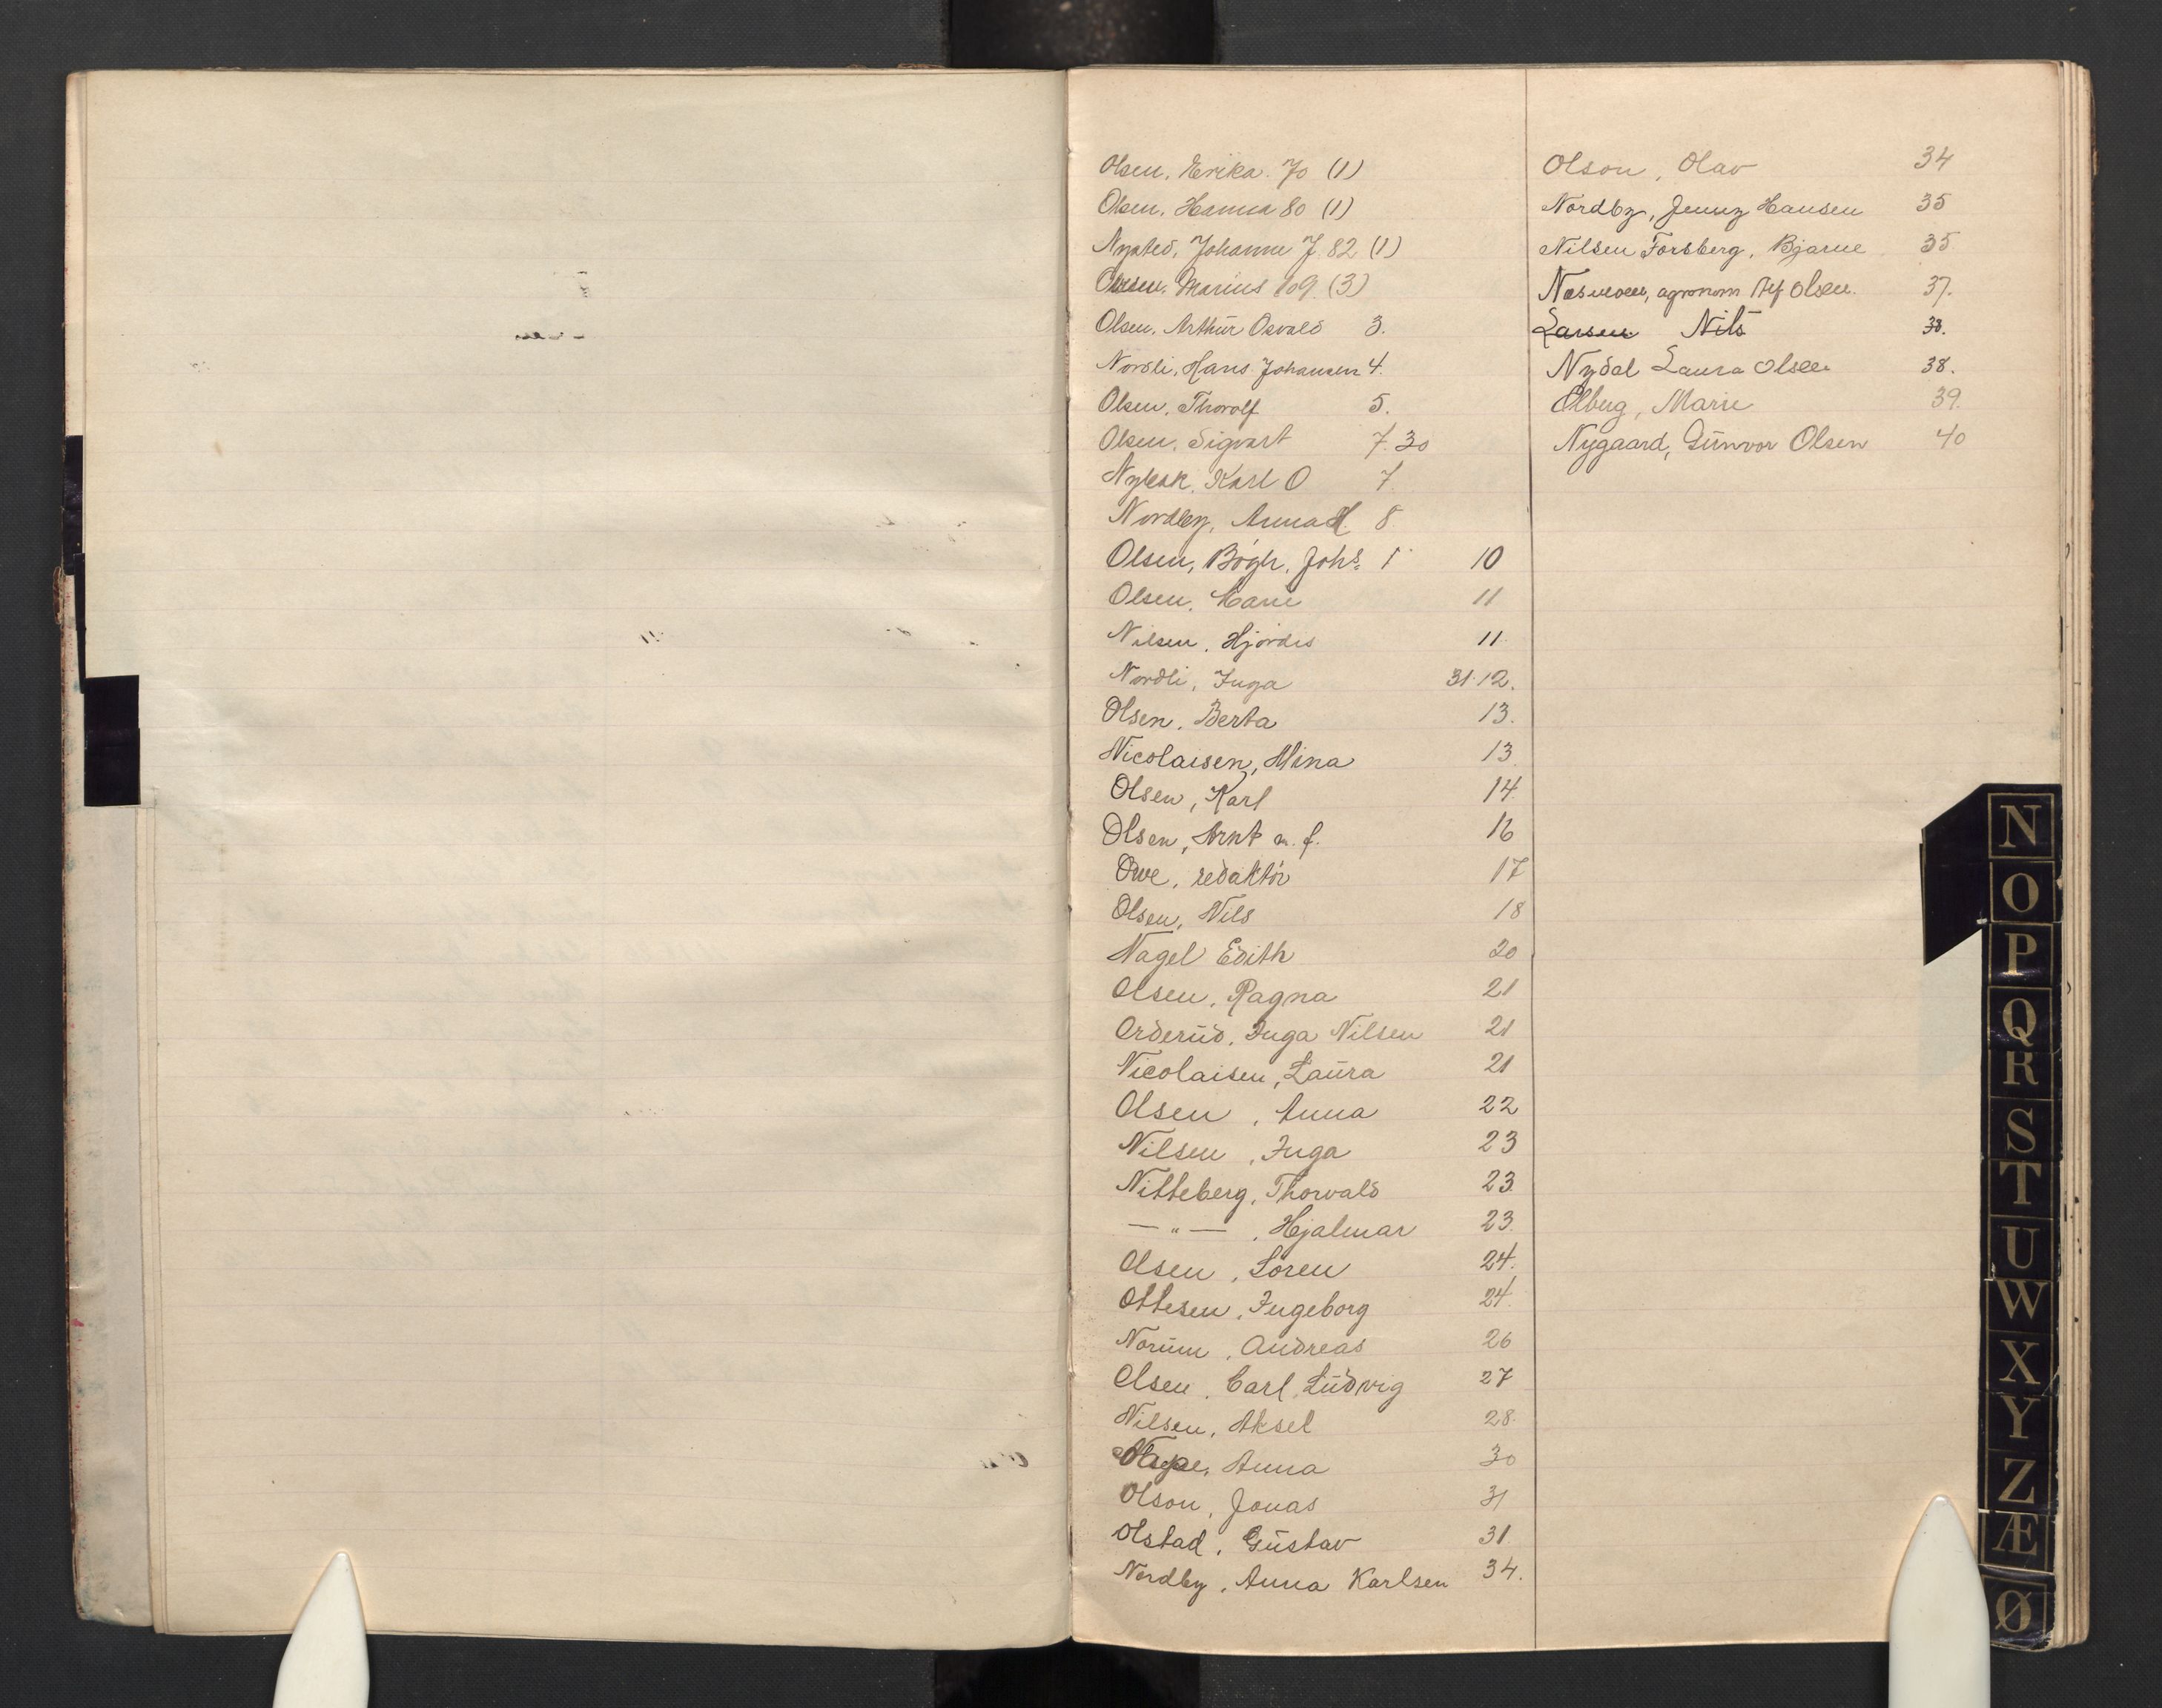 Olsen, Erika. 70 (1)
Olsen, Hanna 80 (1)
Nysted, Johanne J. 82 (1)
Olsen, Marius 109 (3)
Olsen, Arthur Osvald 3.
Nordli, Hans Johansen 4.
Olsen, Thorolf 5.
Olsen, Sigvart 7. 30
Karl O 7
Nordby, Anna H. 8
Olsen, Bøgh, Johs. 1 10
Olsen, Marie 11
Nilsen, Hjördis 11.
Nordli, Inga 31.12.
Olsen, Berta 13.
Nicolaisen, Mina 13.
Olsen, Karl 14.
Olsen, Arnt m. f. 16
Owe, redaktör 17
Olsen, Nils 18
Nagel Edith 20
Olsen, Ragna 21
Orderud, Inga Nilsen 21
Nicolaisen, Laura 21
Olsen, Anna 22
Nilsen, Inga 23
Nitteberg, Thorvald 23.
— " — , Hjalmar 23.
Olsen, Soren 24.
Ottesen, Ingeborg 24.
Norum, Andreas 26
Olsen, Carl Ludvig 27
Nilsen, Aksel 28.
Anna 30
Olson, Jonas 31
Olstad, Gustav 31
Nordby, Anna Karlsen 34.
Olson, Olav 34
Nordby, Jenny Hansen 35
Nilsen Forsberg, Bjarne 35
agronom Alf Olsen. 37.
Larsen Nils 38.
Nydal Laura Olsen 38.
Olberg, Marie 39.
Nygaard, Gunvor Olsen 40
N
O
P
Q
R
S
T
U
W
X
Y
Z
Æ
Ø